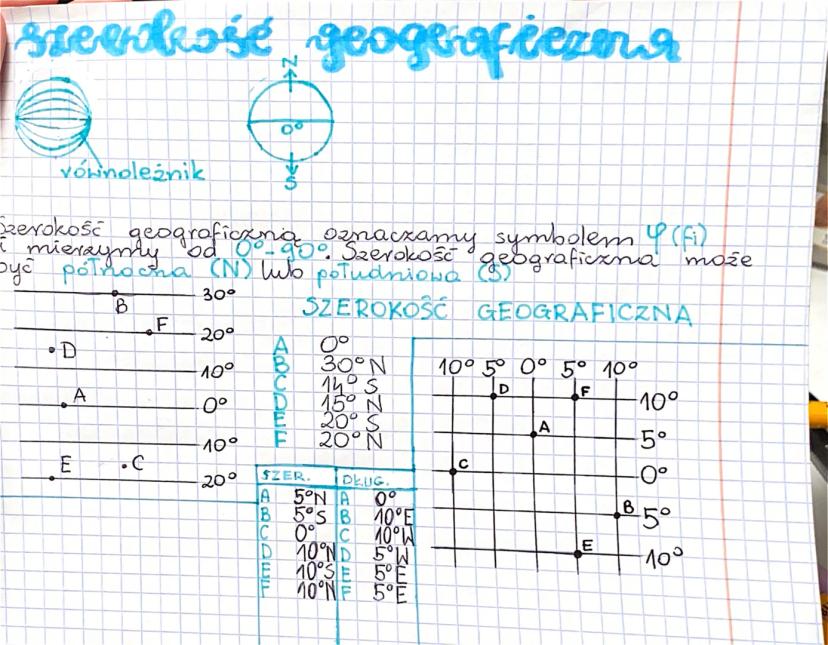 szerokość geograficzna
N
0°
S
równoleżnik
Szerokość geograficzną oznaczamy symbolem φ (fi)
i mierzymy od 0°-90°. Szerokość geograficzna może
być północna (N) lub południowa (S)
30°
B
F
20°
D
10°
A
0°
10°
E
C
20°
SZEROKOŚĆ GEOGRAFICZNA
A 0°
B 30°N
C 14°S
D 15°N
E 20°S
F 20°N
SZER. DŁUG.
A 5°N A 0°
B 5°S B 10°E
C 0° C 10°W
D 10°N D 5°W
E 10°S E 5°E
F 10°N F 5°E
10° 5° 0° 5° 10°
D F 10°
A 5°
C 0°
B 5°
E 10°